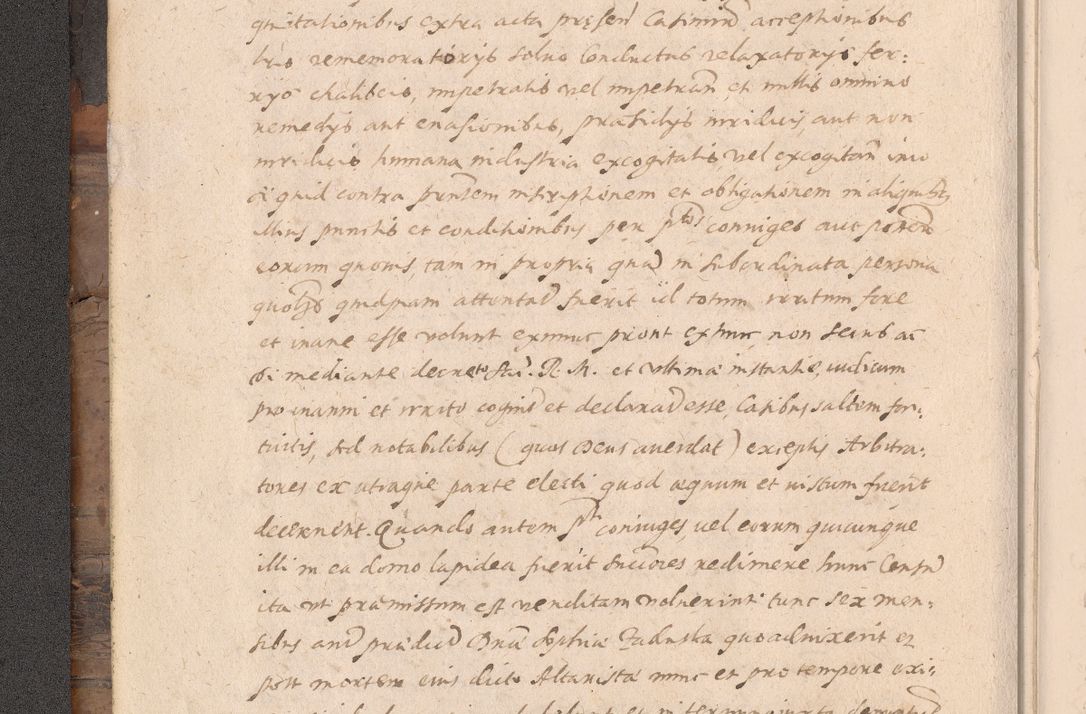 quietationibus extra acta presen Casimiro acceptionibus
rememoratorijs salvo conductus relaxatorijs fer:
reijs chalibeis, impetratis vel impetran et nullis omnino
remedijs aut evasionibus, praesidijs iuridicis, aut non
iuridicis humana industria excogitatis, vel excogitan imo
si quid contra puntem inscriptionem et obligationem in aliquibus
illius punctis et conditionibus per ptos coniuges aut poster
eorum quovis, tam in propria quad in subordinata persona
quidpiam attentad fuerit id totum irritum fore
et inane esse volunt exnunc pront extunc non secus ac
si mediante decreto Sac. R. M. et ultima instantis, iudicum
pro inanni et irrito cognis et declarad esse, Casibus saltem for:
tuitis, sed notabilibus (quos Deus avertat) exceptis Arbitra:
tores ex utraque parte electi quod aequum et iustum fuerit
decernent. Quando autem pti coniuges vel eorum quicunque
illi in ea domo lapidea fuerit succores redimere hunc Censu
ita ut praemissum est venditam voluerint tunc sex men:
sibus and praedict Dna Sophia Zaduska quoadvixerit et
post mortem eius dicto Altarista nunc et pro tempore exi: